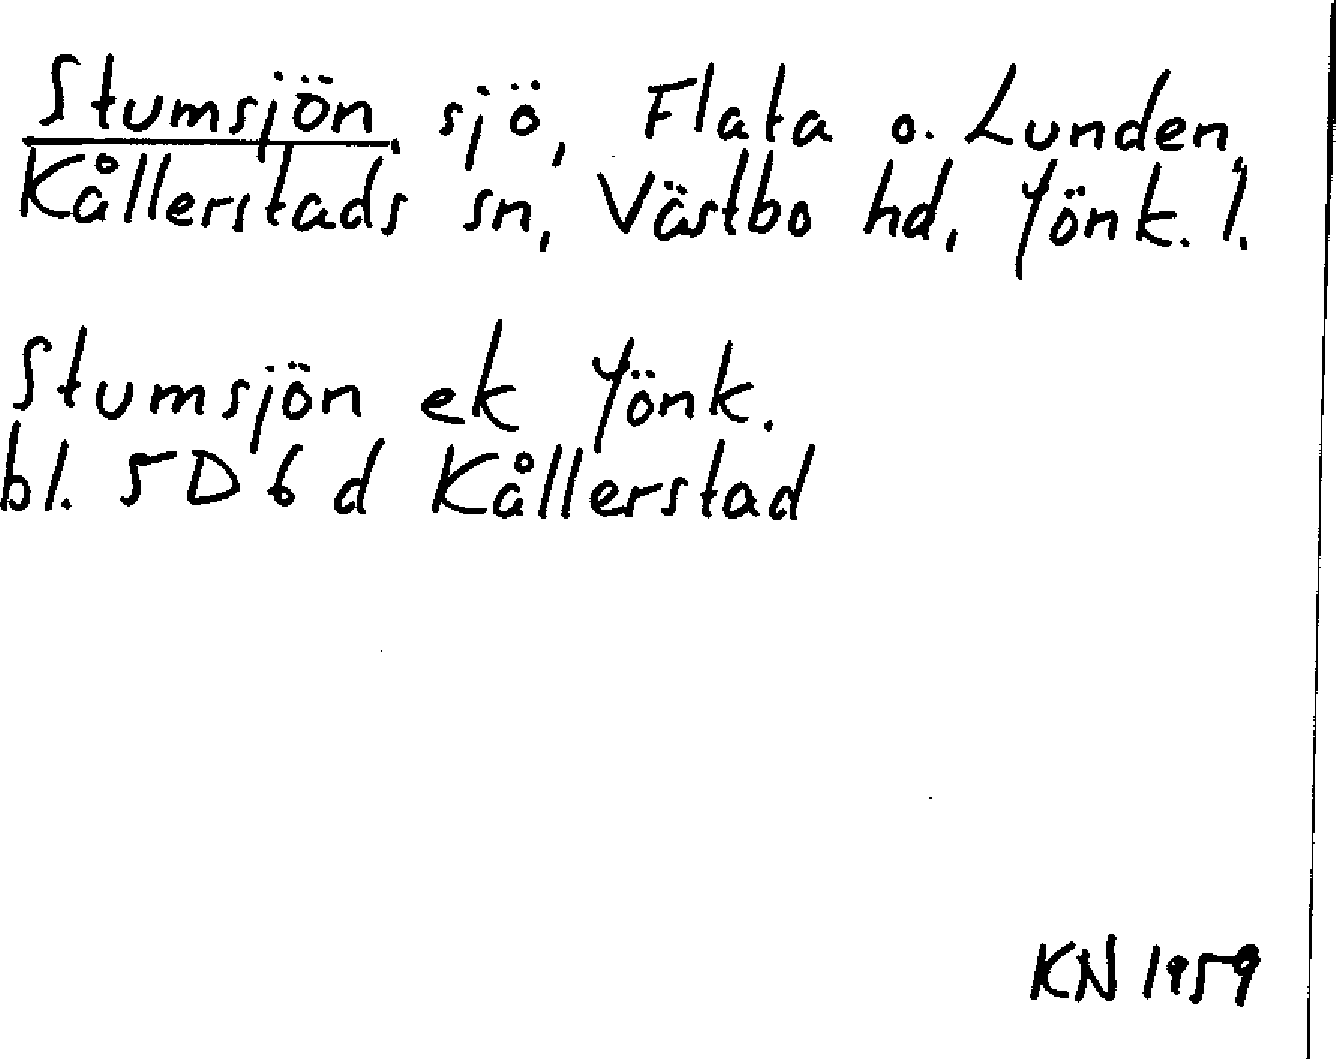 Stumsjön, sjö, Flata o. Lunden,
Kållerstads sn, Västbo hd, Jönk. l.
Stumsjön ek Jönk.
bl. 5D 6 d Kållerstad
KN 1959